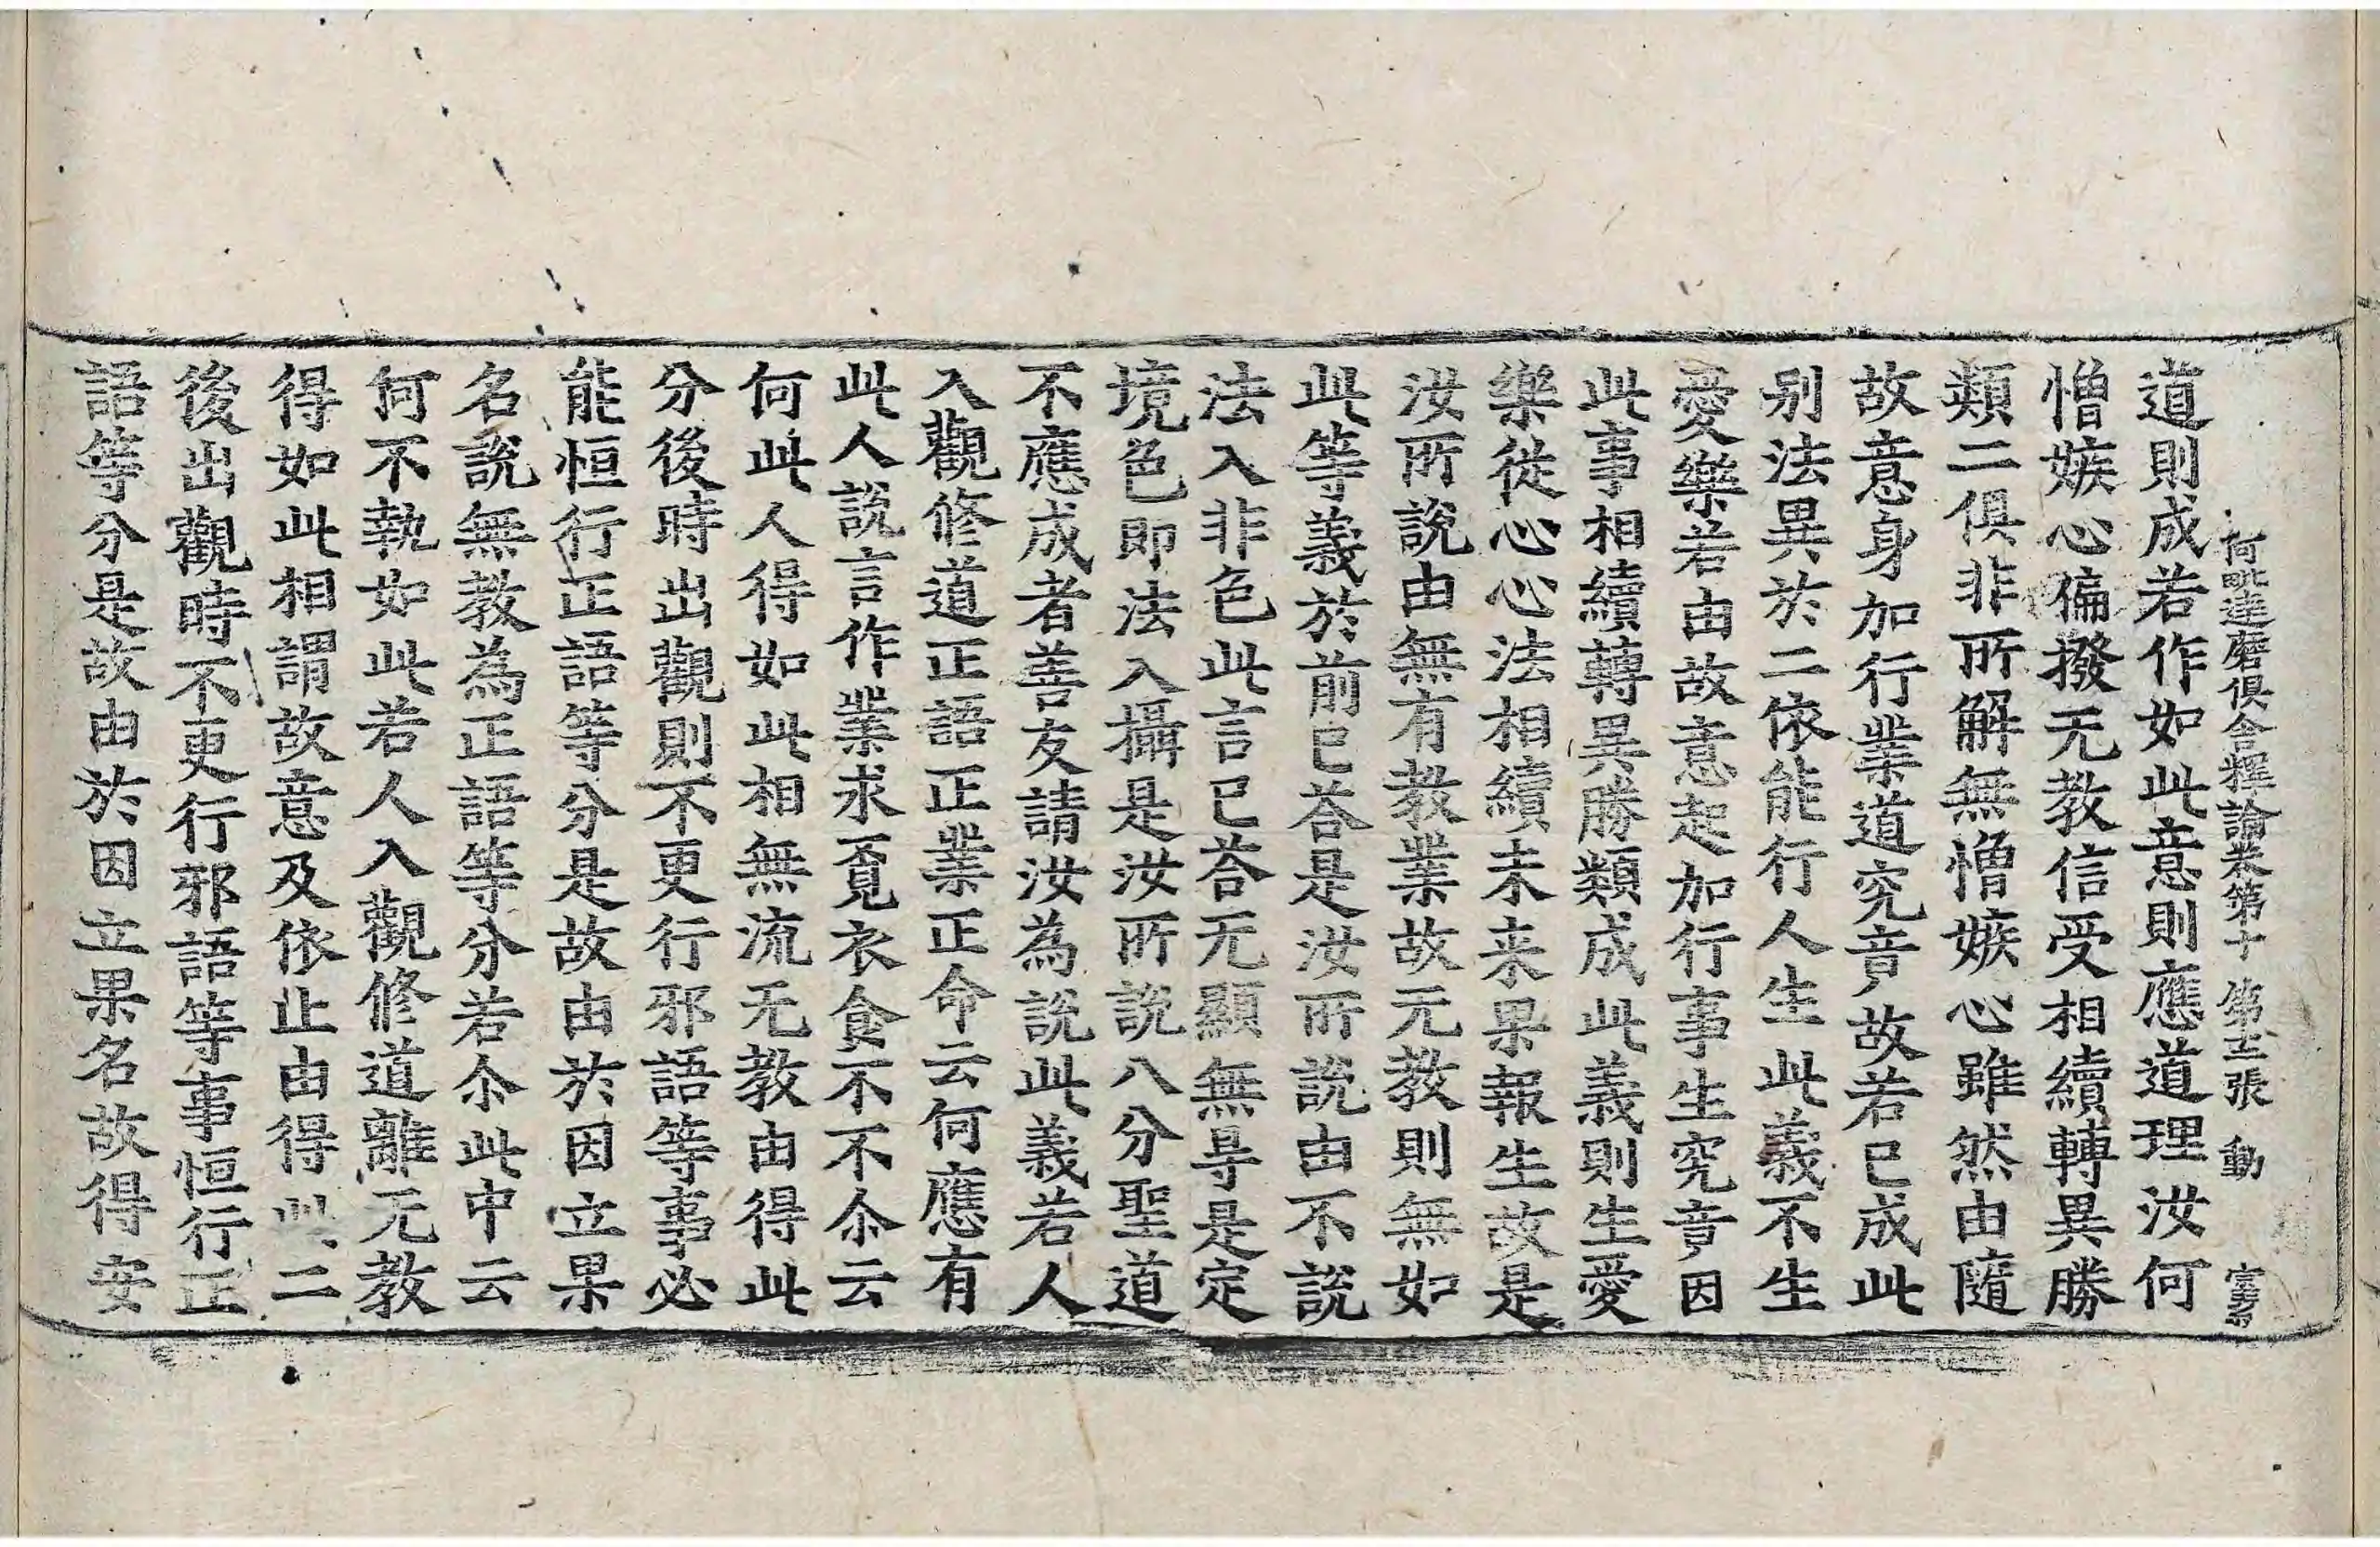 阿毗達磨俱舍釋論卷第十 第五張 動
道則成若作如此意則應道理汝何
憎嫉心偏撥无教信受相續轉異勝
類二俱非所解無憎嫉心雖然由隨
故意身加行業道究竟故若已成此
别法異於二依能行人生此義不生
愛樂若由故意起加行事生究竟因
此事相續轉異勝類成此義則生愛
樂從心心法相續未来果報生故是
汝所說由無有教業故无教則無如
此等義於前已荅是汝所說由不說
法入非色此言已荅无顯無㝵是定
境色即法入攝是汝所說八分聖道
不應成者善友請汝為說此義若人
入觀修道正語正業正命云何應有
此人說言作業求覓衣食不不尒云
何此人得如此相無流无教由得此
分後時出觀則不更行邪語等事必
能恒行正語等分是故由於因立果
名說無教為正語等分若尒此中云
何不執如此若人入觀修道離无教
得如此相謂故意及依止由得此二
後出觀時不更行邪語等事恒行正
語等分是故由於因立果名故得安